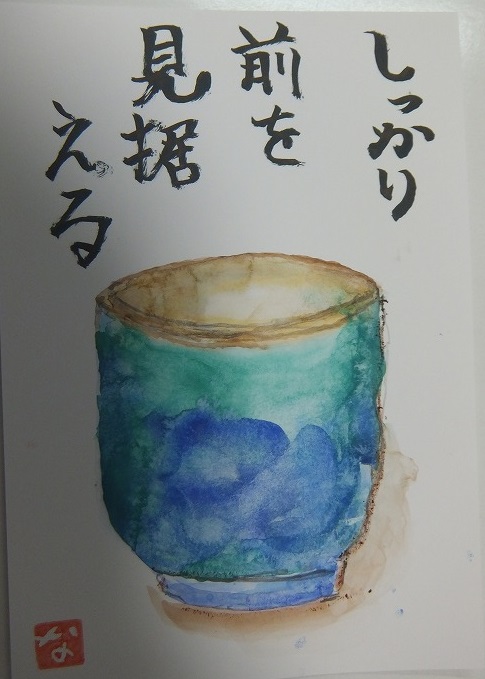 しっかり
前を
見据
える
な